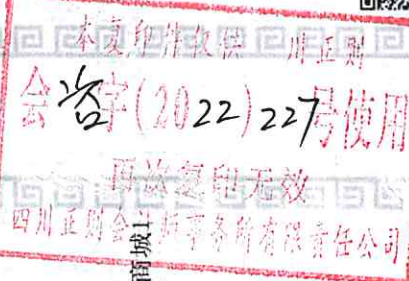 本复印件仅供 川正则
会咨字(2022)227号使用
再次复印无效
四川正则会计师事务所有限责任公司
商城1